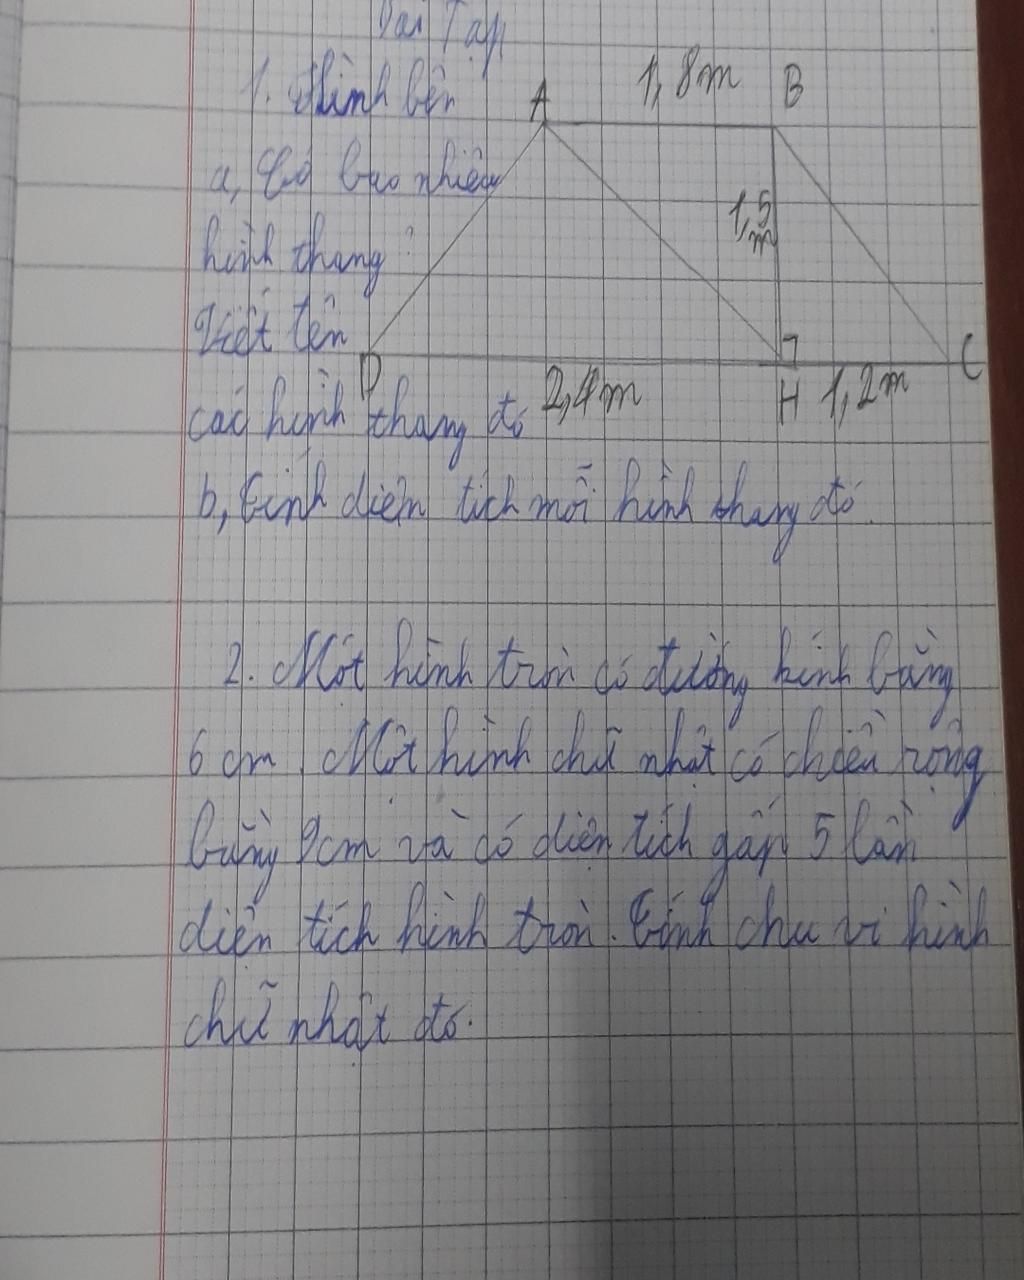 Bài Tập
1. Hình bên
A 1,8m B
a, Có bao nhiêu
1,5
m
hình thang?
Viết tên
D 2,4m H 1,2m C
các hình thang đó
b, Tính diện tích mỗi hình thang đó.
2. Một hình tròn có đường kính bằng
6 cm. Một hình chữ nhật có chiều rộng
bằng 9cm và có diện tích gấp 5 lần
diện tích hình tròn. Tính chu vi hình
chữ nhật đó.